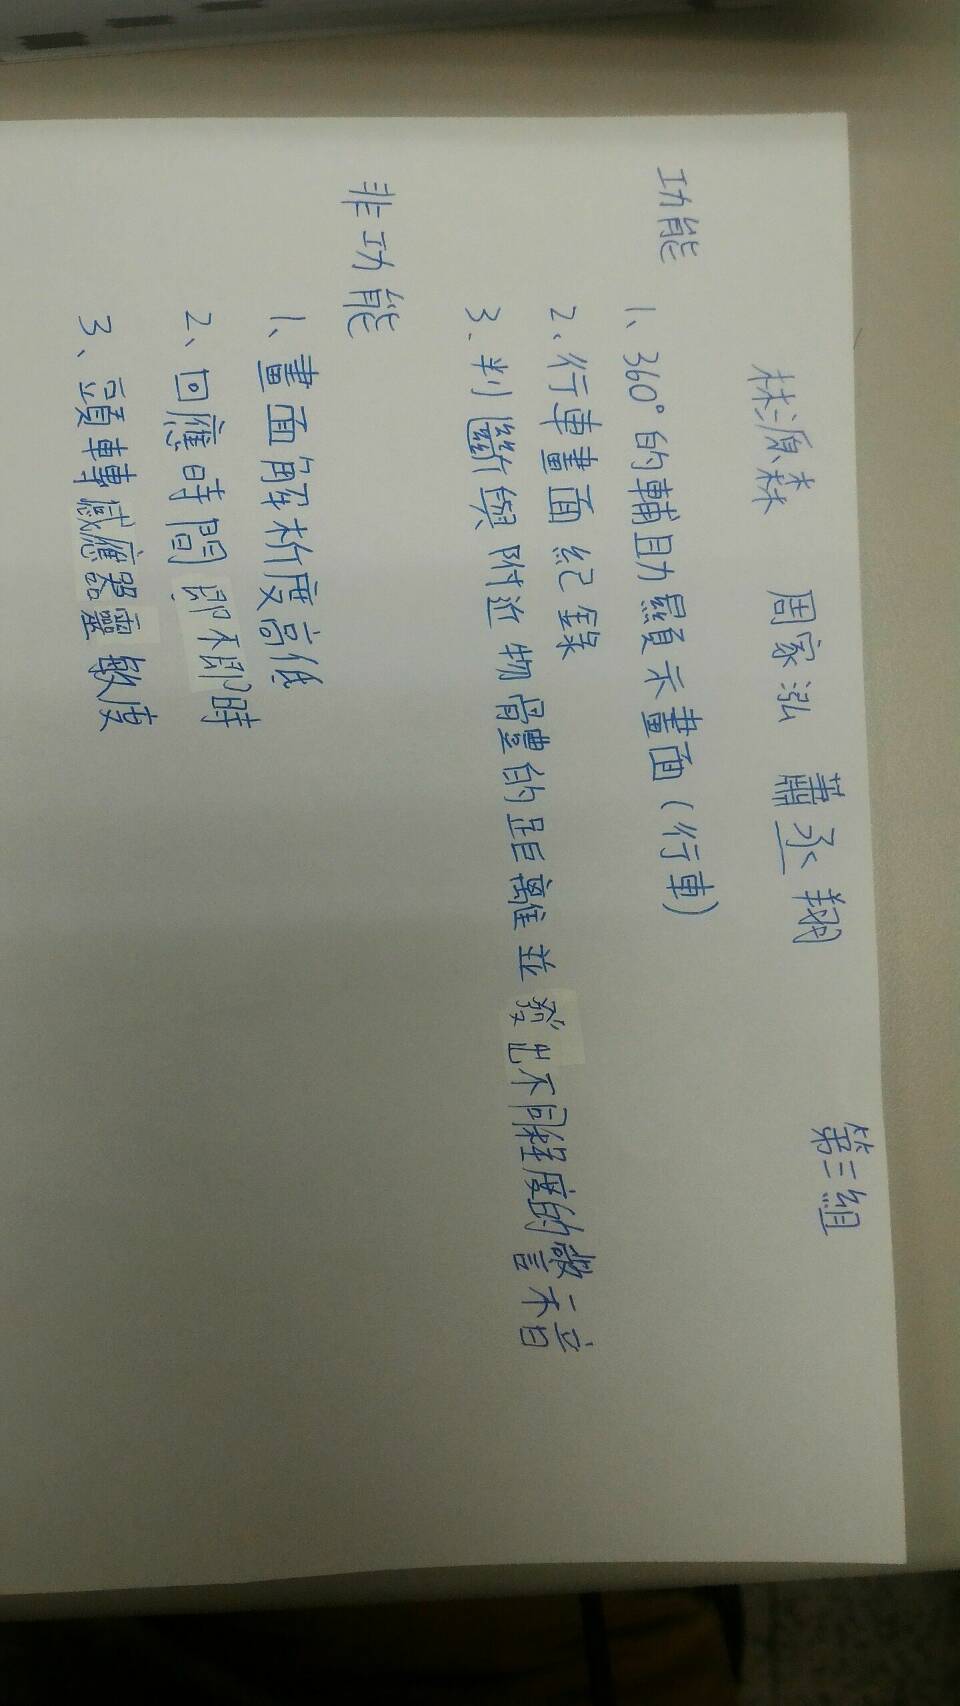 林源森 周家泓 蕭丞翔 第三組
功能
1、360°的輔助顯示畫面(行車)
2、行車畫面紀錄
3、判斷與附近物體的距離並發出不同程度的警示音
非功能
1、畫面解析度高低
2、回應時間即不即時
3、頭轉感應器靈敏度